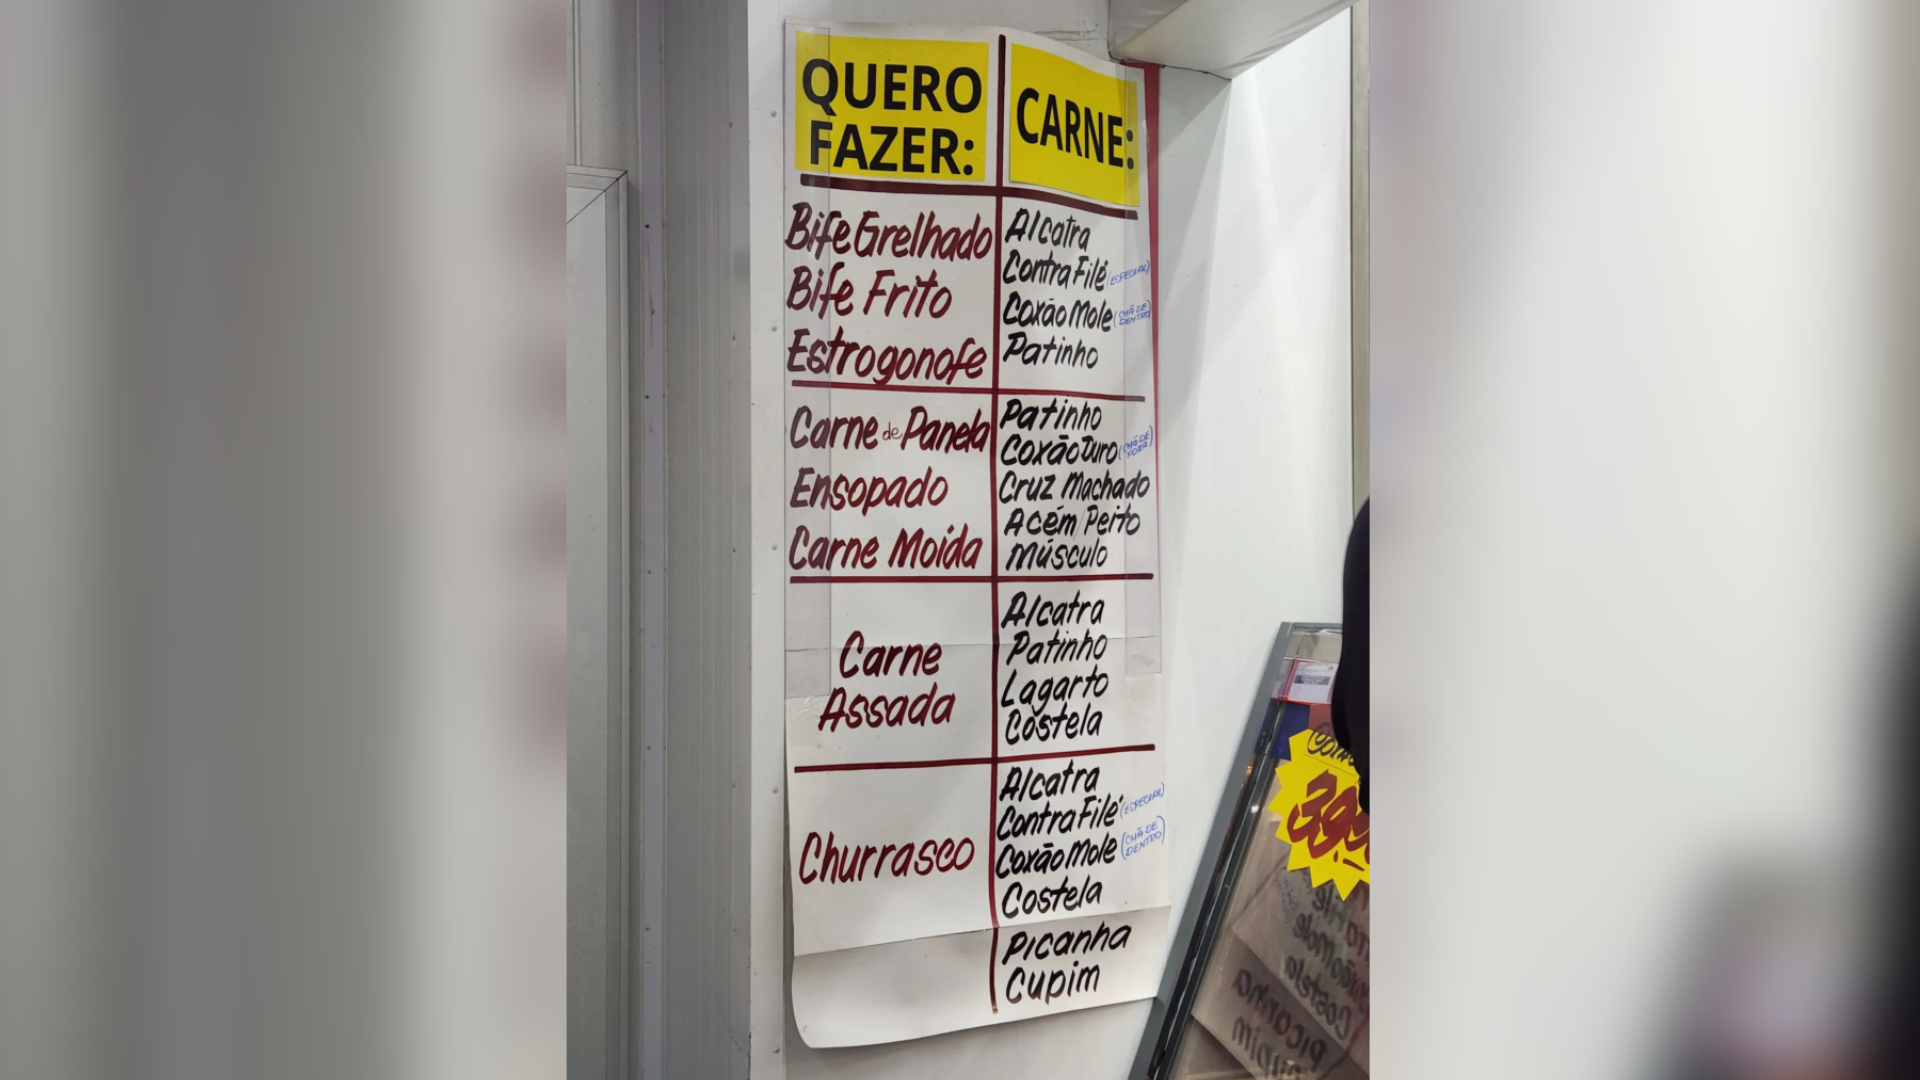 QUERO
FAZER:
CARNE:
Bife Grelhado
Bife Frito
Estrogonofe
Alcatra
Contra Filé (ESPECIAL)
Coxão Mole (CHÃ DE DENTRO)
Patinho
Carne de Panela
Ensopado
Carne Moída
Patinho
Coxão Duro (CHÃ DE FORA)
Cruz Machado
Acém/Peito
Músculo
Carne
Assada
Alcatra
Patinho
Lagarto
Costela
Churrasco
Alcatra
Contra Filé (ESPECIAL)
Coxão Mole (CHÃ DE DENTRO)
Costela
Picanha
Cupim